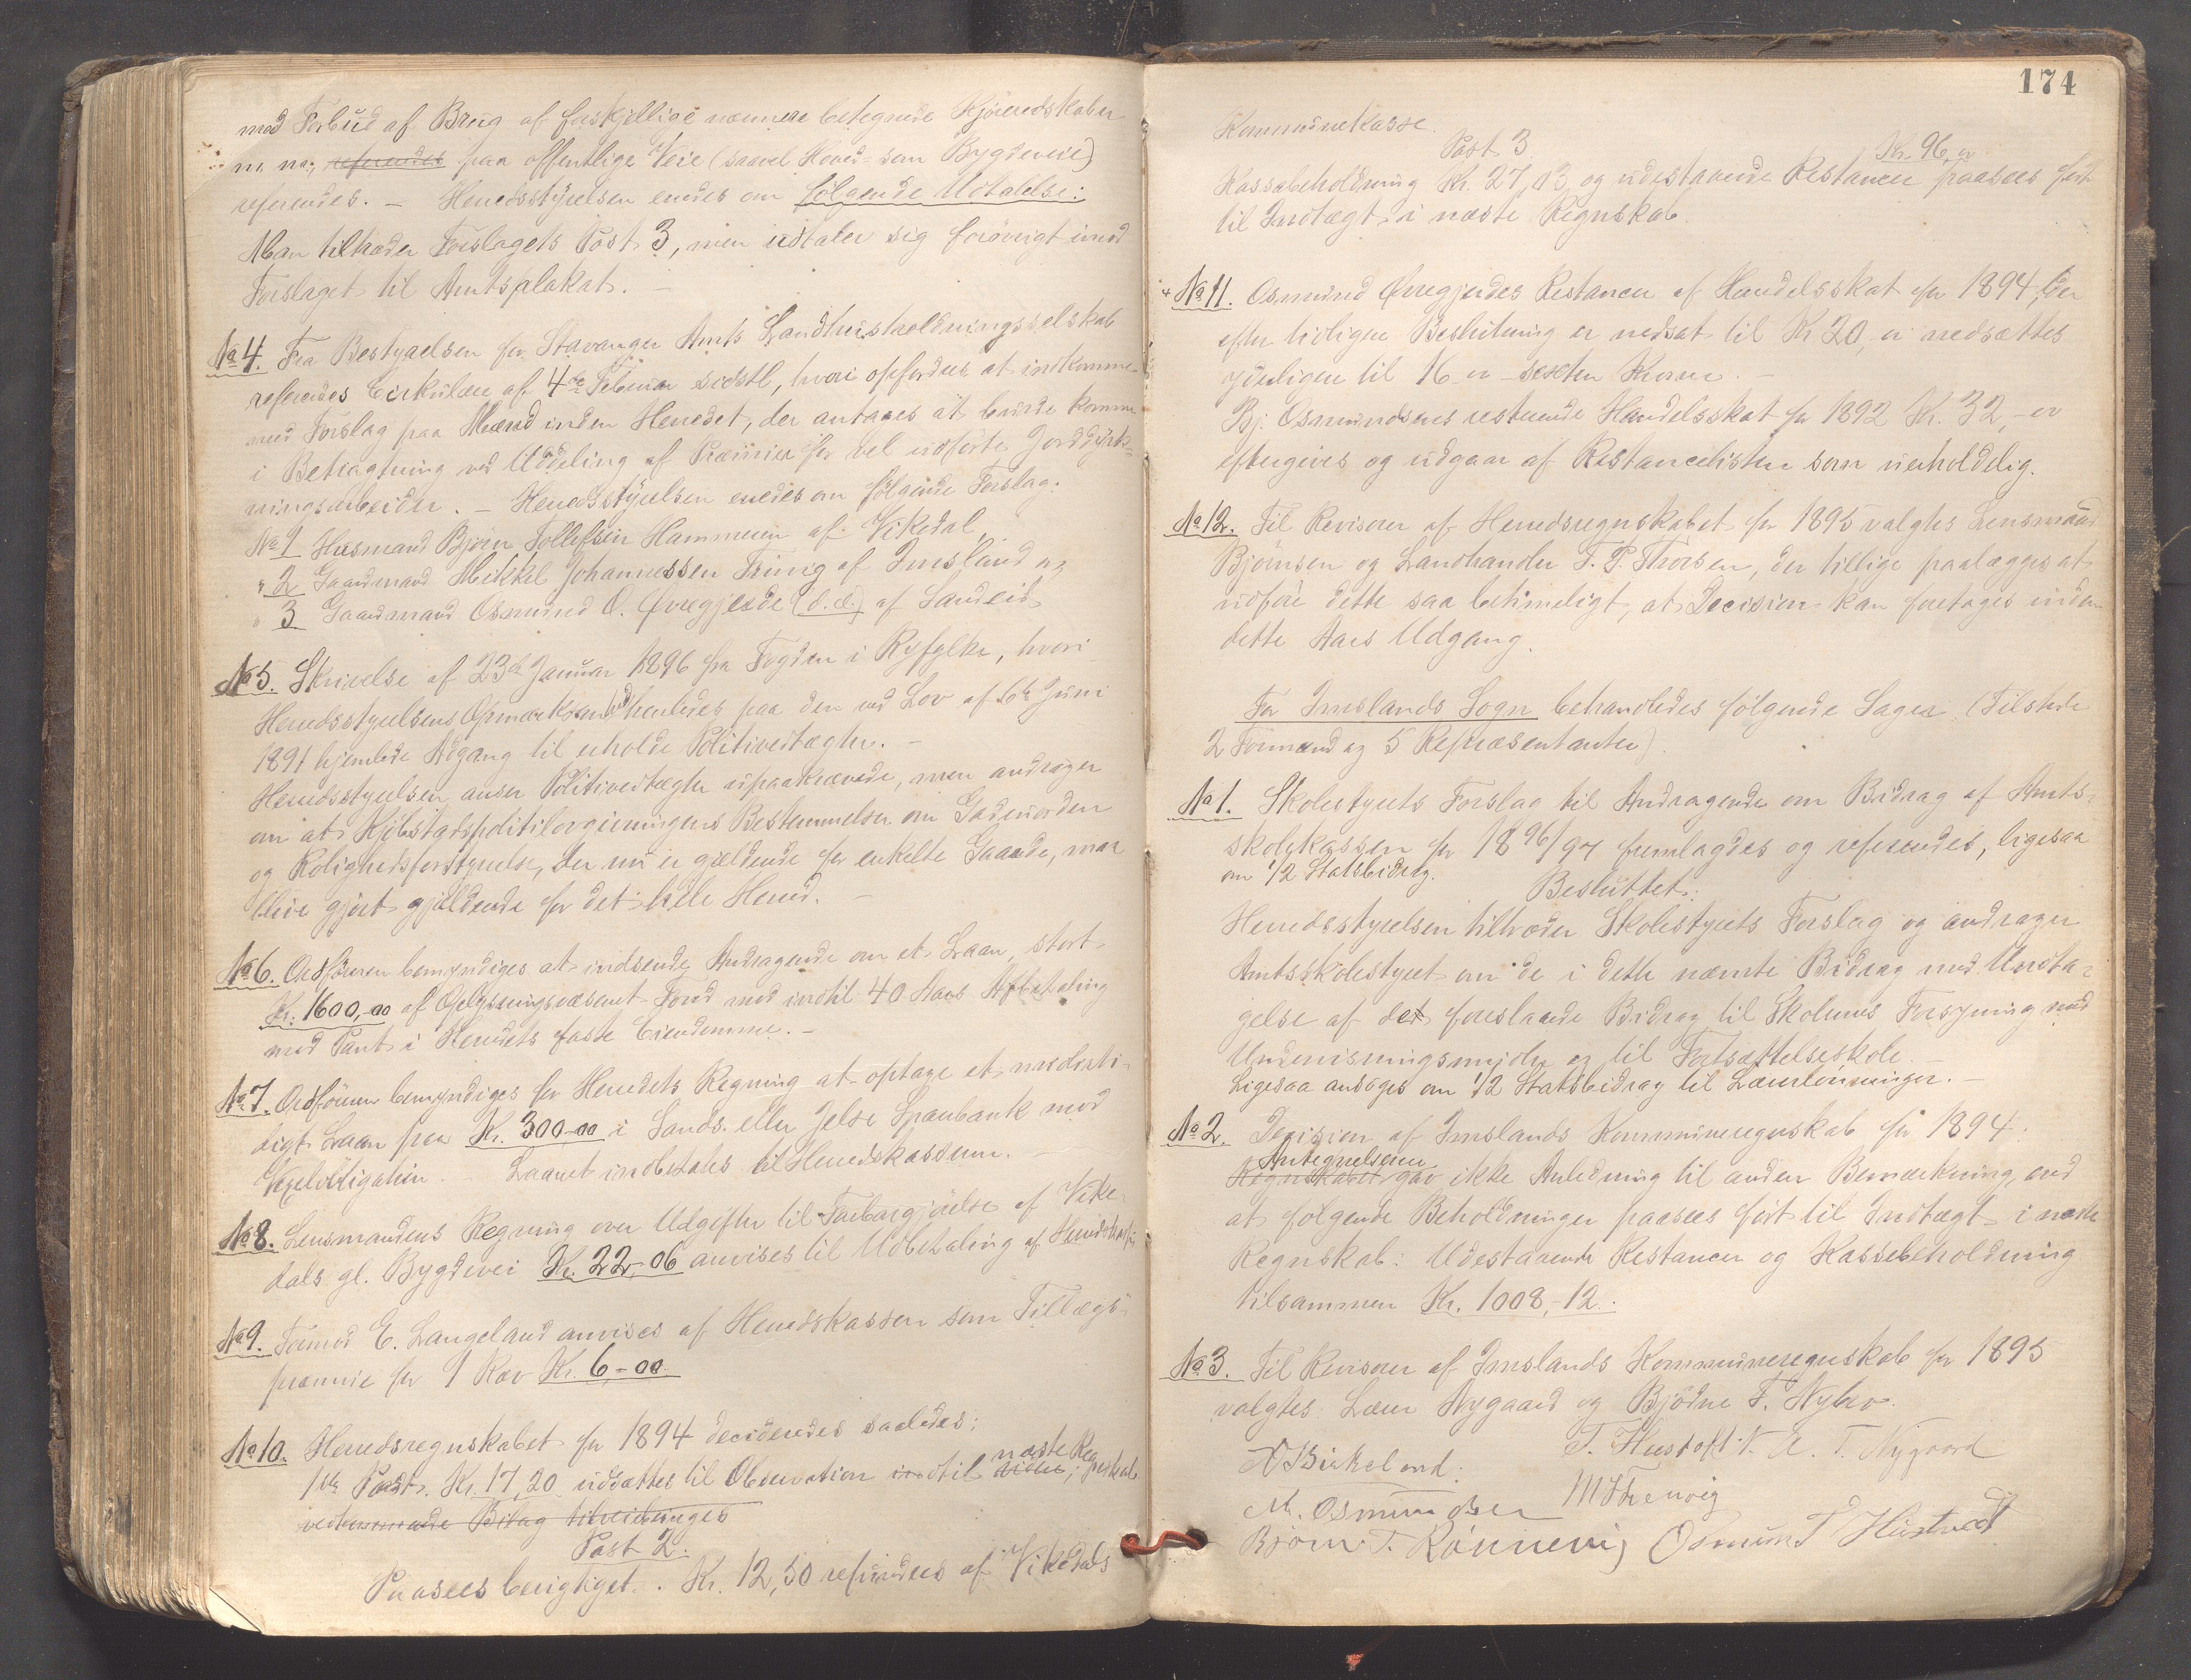 med Forbud af Brug af forskjellige nærmere betegnede Kjøreredskaber
m. m., refereredes paa offentlige Veie (saavel Hoved- som Bygdeveie)
refereredes. – Herredsstyrelsen enedes om følgende Udtalelse:
Man tiltræder Forslagets Post 3, men udtaler sig forøvrigt imod
Forslaget til Amtsplakat. –
No 4. Fra Bestyrelsen for Stavanger Amts Landhusholdningsselskab
refereredes Cirkulære af 4de Februar sidstl, hvori opfordres at indkomme
med Forslag paa Mænd inden Herredet, der antages at burde komme
i Betragtning ved Uddeling af Præmier for vel udførte Jorddyrk-
ningsarbeider. – Herredsstyrelsen enedes om følgende Forslag:
No 1 Husmand Bjørn Tollefsen Hammeren af Vikedal
" 2 Gaardmand Mikkel Johannessen Frønig af Imsland og
" 3 Gaardmand Osmund O. Øvregjerde (d. æ.) af Sandeid
No 5. Skrivelse af 23de Januar 1896 fra Fogden i Ryfylke, hvori
Herredsstyrelsens Opmærksomhed henledes paa den ved Lov af 6te Juni
1891 hjemlede Adgang til erholde Politivedtægter. –
Herredsstyrelsen anser Politivedtægter upaakrævede, men andrager
om at Kjøbstadspolitilovgivningens Bestemmelser om Gadeuorden
og Rolighedsforstyrrelse, der nu er gjældende for enkelte Gaarde, maa
blive gjort gjældende for det hele Herred. –
No 6. Ordføreren bemyndiges at indsende Andragende om et Laan, stort
Kr. 1600,00 af Oplysningsvæsenet Fond med indtil 40 Aars Afbetaling
mod Pant i Herredets faste Eiendomme. –
No 7. Ordføreren bemyndiges for Herredets Regning at optage et midlerti-
digt Laan paa Kr. 300-00 i Sands- eller Jelse Sparebank mod
Vexelobligation. – Laanet indbetales til Herredskassen. –
No 8. Lensmandens Regning over Udgifter til Farbargjørelse af Vike-
dals gl. Bygdevei Kr. 22-06 anvises til Udbetaling af Herredskassen
No 9. Tormod E. Langeland anvises af Herredskassen som Tillægs-
præmie for 1 Ræv Kr. 6,-00.
No 10. Herredsregnskabet for 1894 decideredes saaledes:
næste Regnskab
1ste Post. Kr. 17,20 udsættes til Observation indtil videre;
vedkommende Bilag tilveiebringes
Post 2.
Paasees berigtiget. Kr. 12,50 refunderes af Vikedals
174
Kommunekasse.
Post 3
Kr. 96,
Kassebeholdning Kr. 27,13 og udestaaende Restancer paasees ført
til Indtægt i næste Regnskab.
No 11. Osmund Øvregjerdes Restance af Handelsskat for 1894, der
efter tidligere Beslutning er nedsat til Kr 20, er nedsættes
yderligere til 16 er – sexten Kroner. –
Bj. Osmundsens resterende Handelsskat for 1892 Kr. 32,- er
eftergives og udgaar af Restancelisten som uerholdelig.
No 12. Til Revisorer af Herredsregnskabet for 1895 valgtes Lensmand
Bjørnsen og Landhandler T. P. Thorsen, der tillige paalægges at
udføre dette saa betimeligt, at Decision kan foretages inden
dette Aars Udgang.
For Imslands Sogn behandledes følgende Sager (Tilstede
2 Formænd og 5 Repræsentanter).
No 1. Skolestyrets Forslag til Andragende om Bidrag af Amts-
skolekassen for 1896/97 fremlagdes og refereredes, ligesaa
om 1/2 Statsbidrag.
Besluttet:
Herredsstyrelsen tiltræder Skolestyrets Forslag og andrager
Amtsskolestyret om de i dette nævnte Bidrag med Undta-
gelse af det foreslaaede Bidrag til Skolernes Forsyning med
Undervisningsmidler og til Fortsættelseskole. –
Ligesaa ansøges om 1/2 Statsbidrag til Lærerlønninger. –
No 2. Decision af Imslands Kommuneregnskab for 1894.
Antegnelserne
Regnskabet gav ikke Anledning til anden Bemærkning, end
at følgende Beholdninger paasees ført til Indtægt i næste
Regnskab: Udestaaende Restancer og Kassebeholdning
tilsammen Kr. 1008,-12.
No 3. Til Revisorer af Imslands Kommuneregnskab for 1895
valgtes: Lærer Nygaard og Bjødne T. Nybro.
A Birkeland. T. Hustoft. A. T. Nygaard
M. Osmundsen M Frønvig
Bjørn T. Rønnevig Osmun T Hustvedt